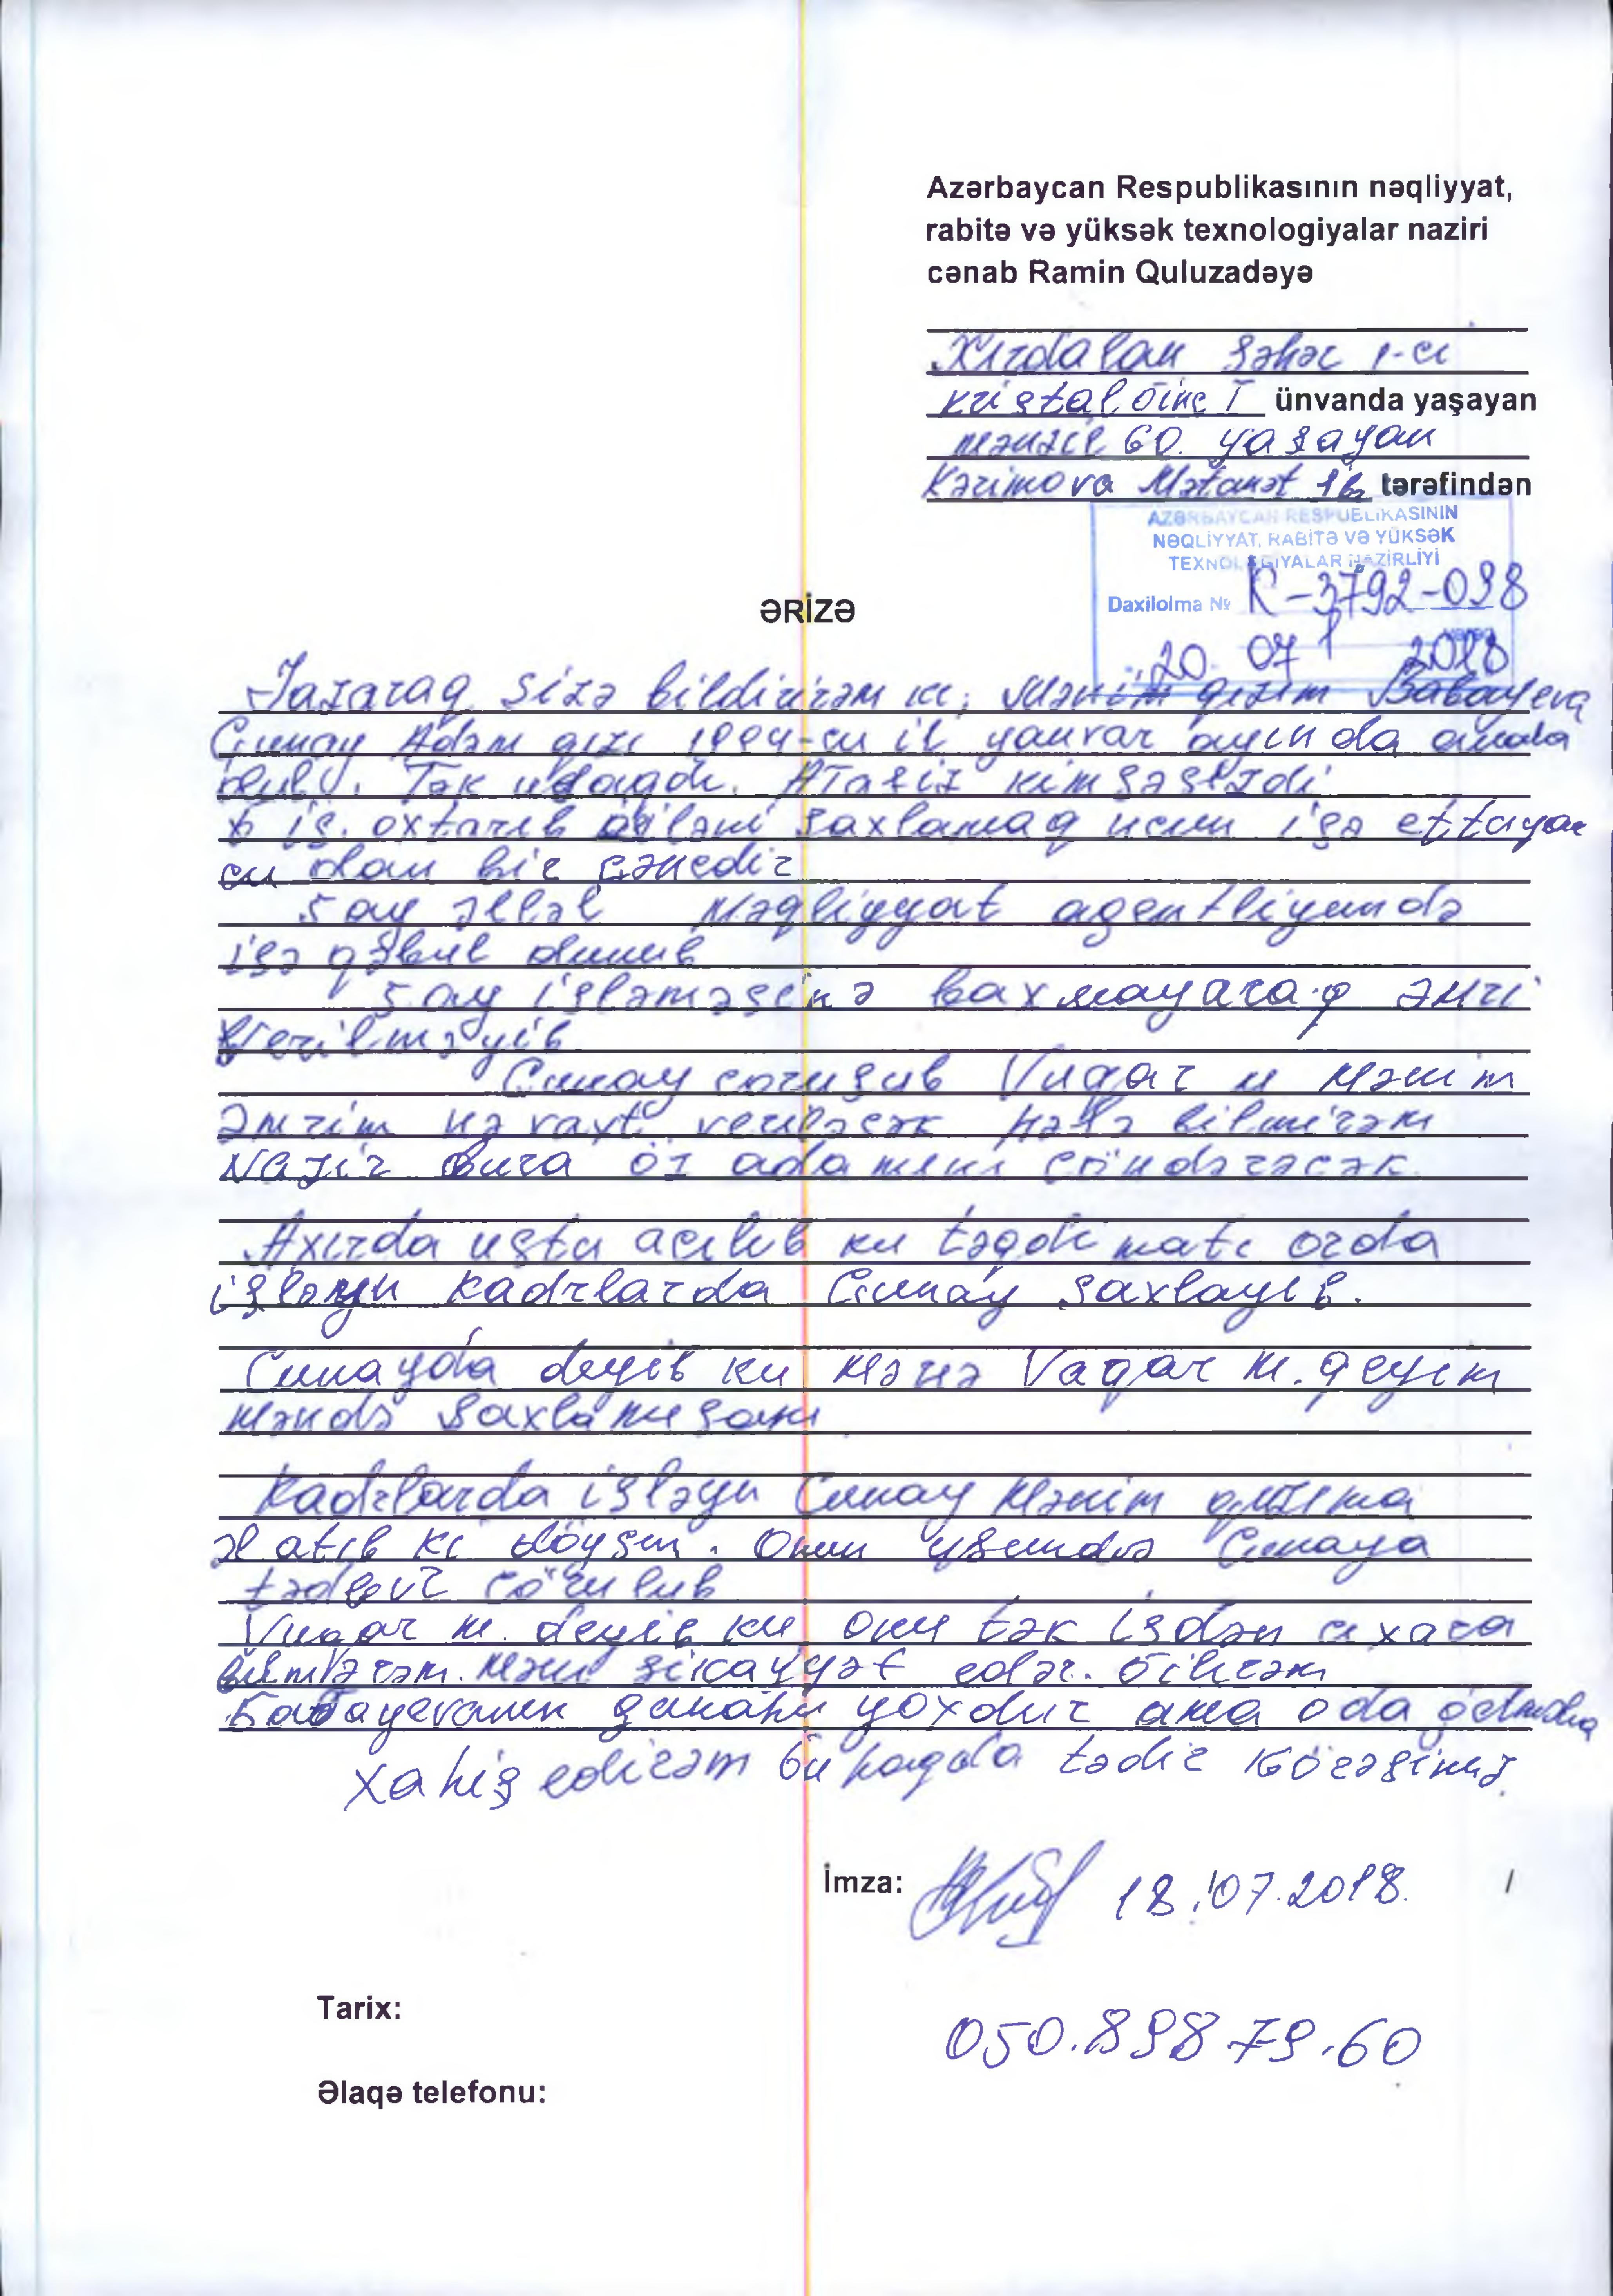 Azərbaycan Respublikasının nəqliyyat,
rabitə və yüksək texnologiyalar naziri
cənab Ramin Quluzadəyə
Xırdalan şəhər 1-ci
kristal ünvanda yaşayan
mənzil 60. yaşayan
Kərimova Mətanət tərəfindən
AZƏRBAYCAN RESPUBLİKASININ
NƏQLİYYAT, RABİTƏ VƏ YÜKSƏK
TEXNOLOGİYALAR NAZİRLİYİ
Daxilolma № K-3792-098
20 07 2018
ƏRİZƏ
Yazaraq sizə bildirirəm ki, Mənim qızım Babayeva
Gunay Adəm qızı 1994-cu il yanvar ayında anada
olub. Tək uşaqdı. Atasiz kimsəsizdi
iş. oxtarıb ailəni saxlamaq ucun işə
olan bir gəncdir
5 ay əlləl Nəqliyyat agentliyunda
işə qəbul olunub
5 ay işləməsinə baxmayaraq əmri
verilməyib
Gunay coruşub Vuqar m Mənim
əmrim nə vaxt veriləcək hələ bilmirəm
Nazir bura öz adamını cöndərəcək
Axırda ustu acılıb ku təqdimatı orda
işləyn kadrlarda Gunay saxlayıb.
Gunayda deyib ku Mənə Vaqar m. qeyim
Məndə saxlamuşam
Kadrlarda işləyn Gunay Mənim qızıma
əl atıb ki döysun. Onun Gunaya
tədbvr cörulub
Vuqar m. deyib ku onu tək işdən cıxara
bilmərəm. Məni şikayyət edər.
Babayevanın gunahı yoxdur ama o da
xahiş edirəm bu haqda tədir görəsiniz.
İmza: 18.07.2018.
Tarix:
050.898 79.60
Əlaqə telefonu: